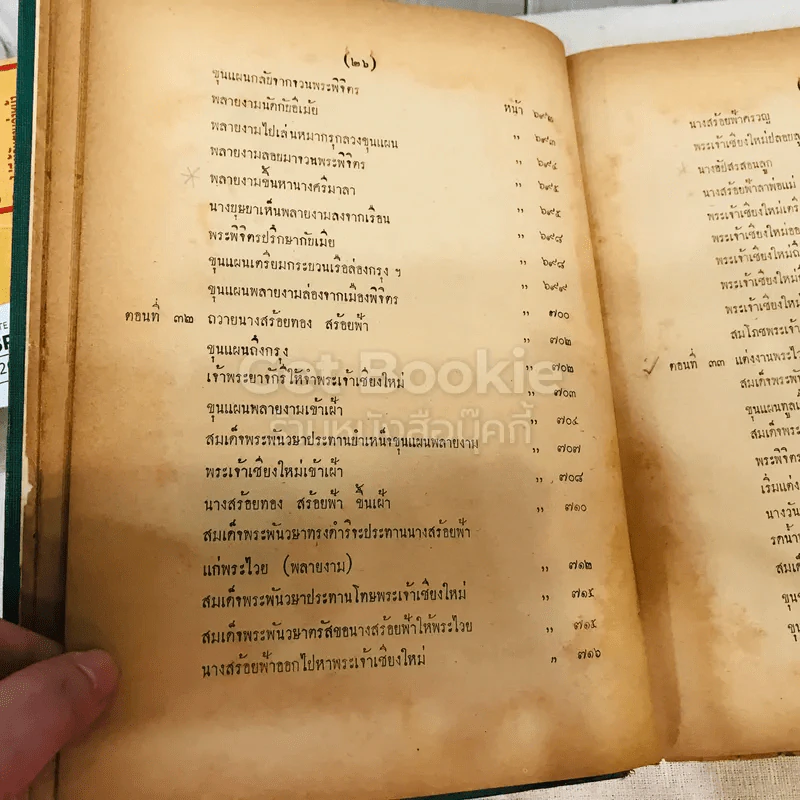 (๒๖)
ขุนแผนกลับจากจวนพระพิจิตร
พลายงามนัดกับอีเม้ย หน้า ๖๙๒
พลายงามไปเล่นหมากรุกลวงขุนแผน ,, ๖๙๓
พลายงามลอบมาจวนพระพิจิตร ,, ๖๙๔
พลายงามขึ้นหานางศรีมาลา ,, ๖๙๕
นางบุษบาเห็นพลายงามลงจากเรือน ,, ๖๙๕
พระพิจิตรปรึกษากับเมีย ,, ๖๙๘
ขุนแผนเตรียมกระบวนเรือล่องกรุง ฯ ,, ๖๙๘
ขุนแผนพลายงามล่องจากเมืองพิจิตร ,, ๖๙๙
ตอนที่ ๓๒ ถวายนางสร้อยทอง สร้อยฟ้า ,, ๗๐๐
ขุนแผนถึงกรุง ,, ๗๐๒
เจ้าพระยาจักรีให้จำพระเจ้าเชียงใหม่ ,, ๗๐๒
ขุนแผนพลายงามเข้าเฝ้า ,, ๗๐๓
สมเด็จพระพันวษาประทานบำเหน็จขุนแผนพลายงาม ,, ๗๐๔
พระเจ้าเชียงใหม่เข้าเฝ้า ,, ๗๐๗
นางสร้อยทอง สร้อยฟ้า ขึ้นเฝ้า ,, ๗๐๘
สมเด็จพระพันวษาทรงดำริจะประทานนางสร้อยฟ้า ,, ๗๑๐
แก่พระไวย (พลายงาม) ,, ๗๑๒
สมเด็จพระพันวษาประทานโทษพระเจ้าเชียงใหม่ ,, ๗๑๕
สมเด็จพระพันวษาตรัสขอนางสร้อยฟ้าให้พระไวย ,, ๗๑๕
นางสร้อยฟ้าออกไปหาพระเจ้าเชียงใหม่ ,, ๗๑๖
Get Bookie
รวมหนังสือบุ๊คกี้
นางสร้อยฟ้าครวญ
พระเจ้าเชียงใหม่ปลอบลู
นางอัปสรสอนลูก
นางสร้อยฟ้าลาพ่อแม่
พระเจ้าเชียงใหม่เตรี
พระเจ้าเชียงใหม่ออ
พระเจ้าเชียงใหม่ถึ
พระเจ้าเชียงใหม่
พระเจ้าเชียงใหม่
สมโภชพระเจ้า
ตอนที่ ๓๓ แต่งงานพระไว
สมเด็จพระพั
ขุนแผนทูล
สมเด็จพระ
พระพิจิตร
เริ่มแต่ง
นางวัน
รดน้ำ
สมเด็
ขุน
ขุน